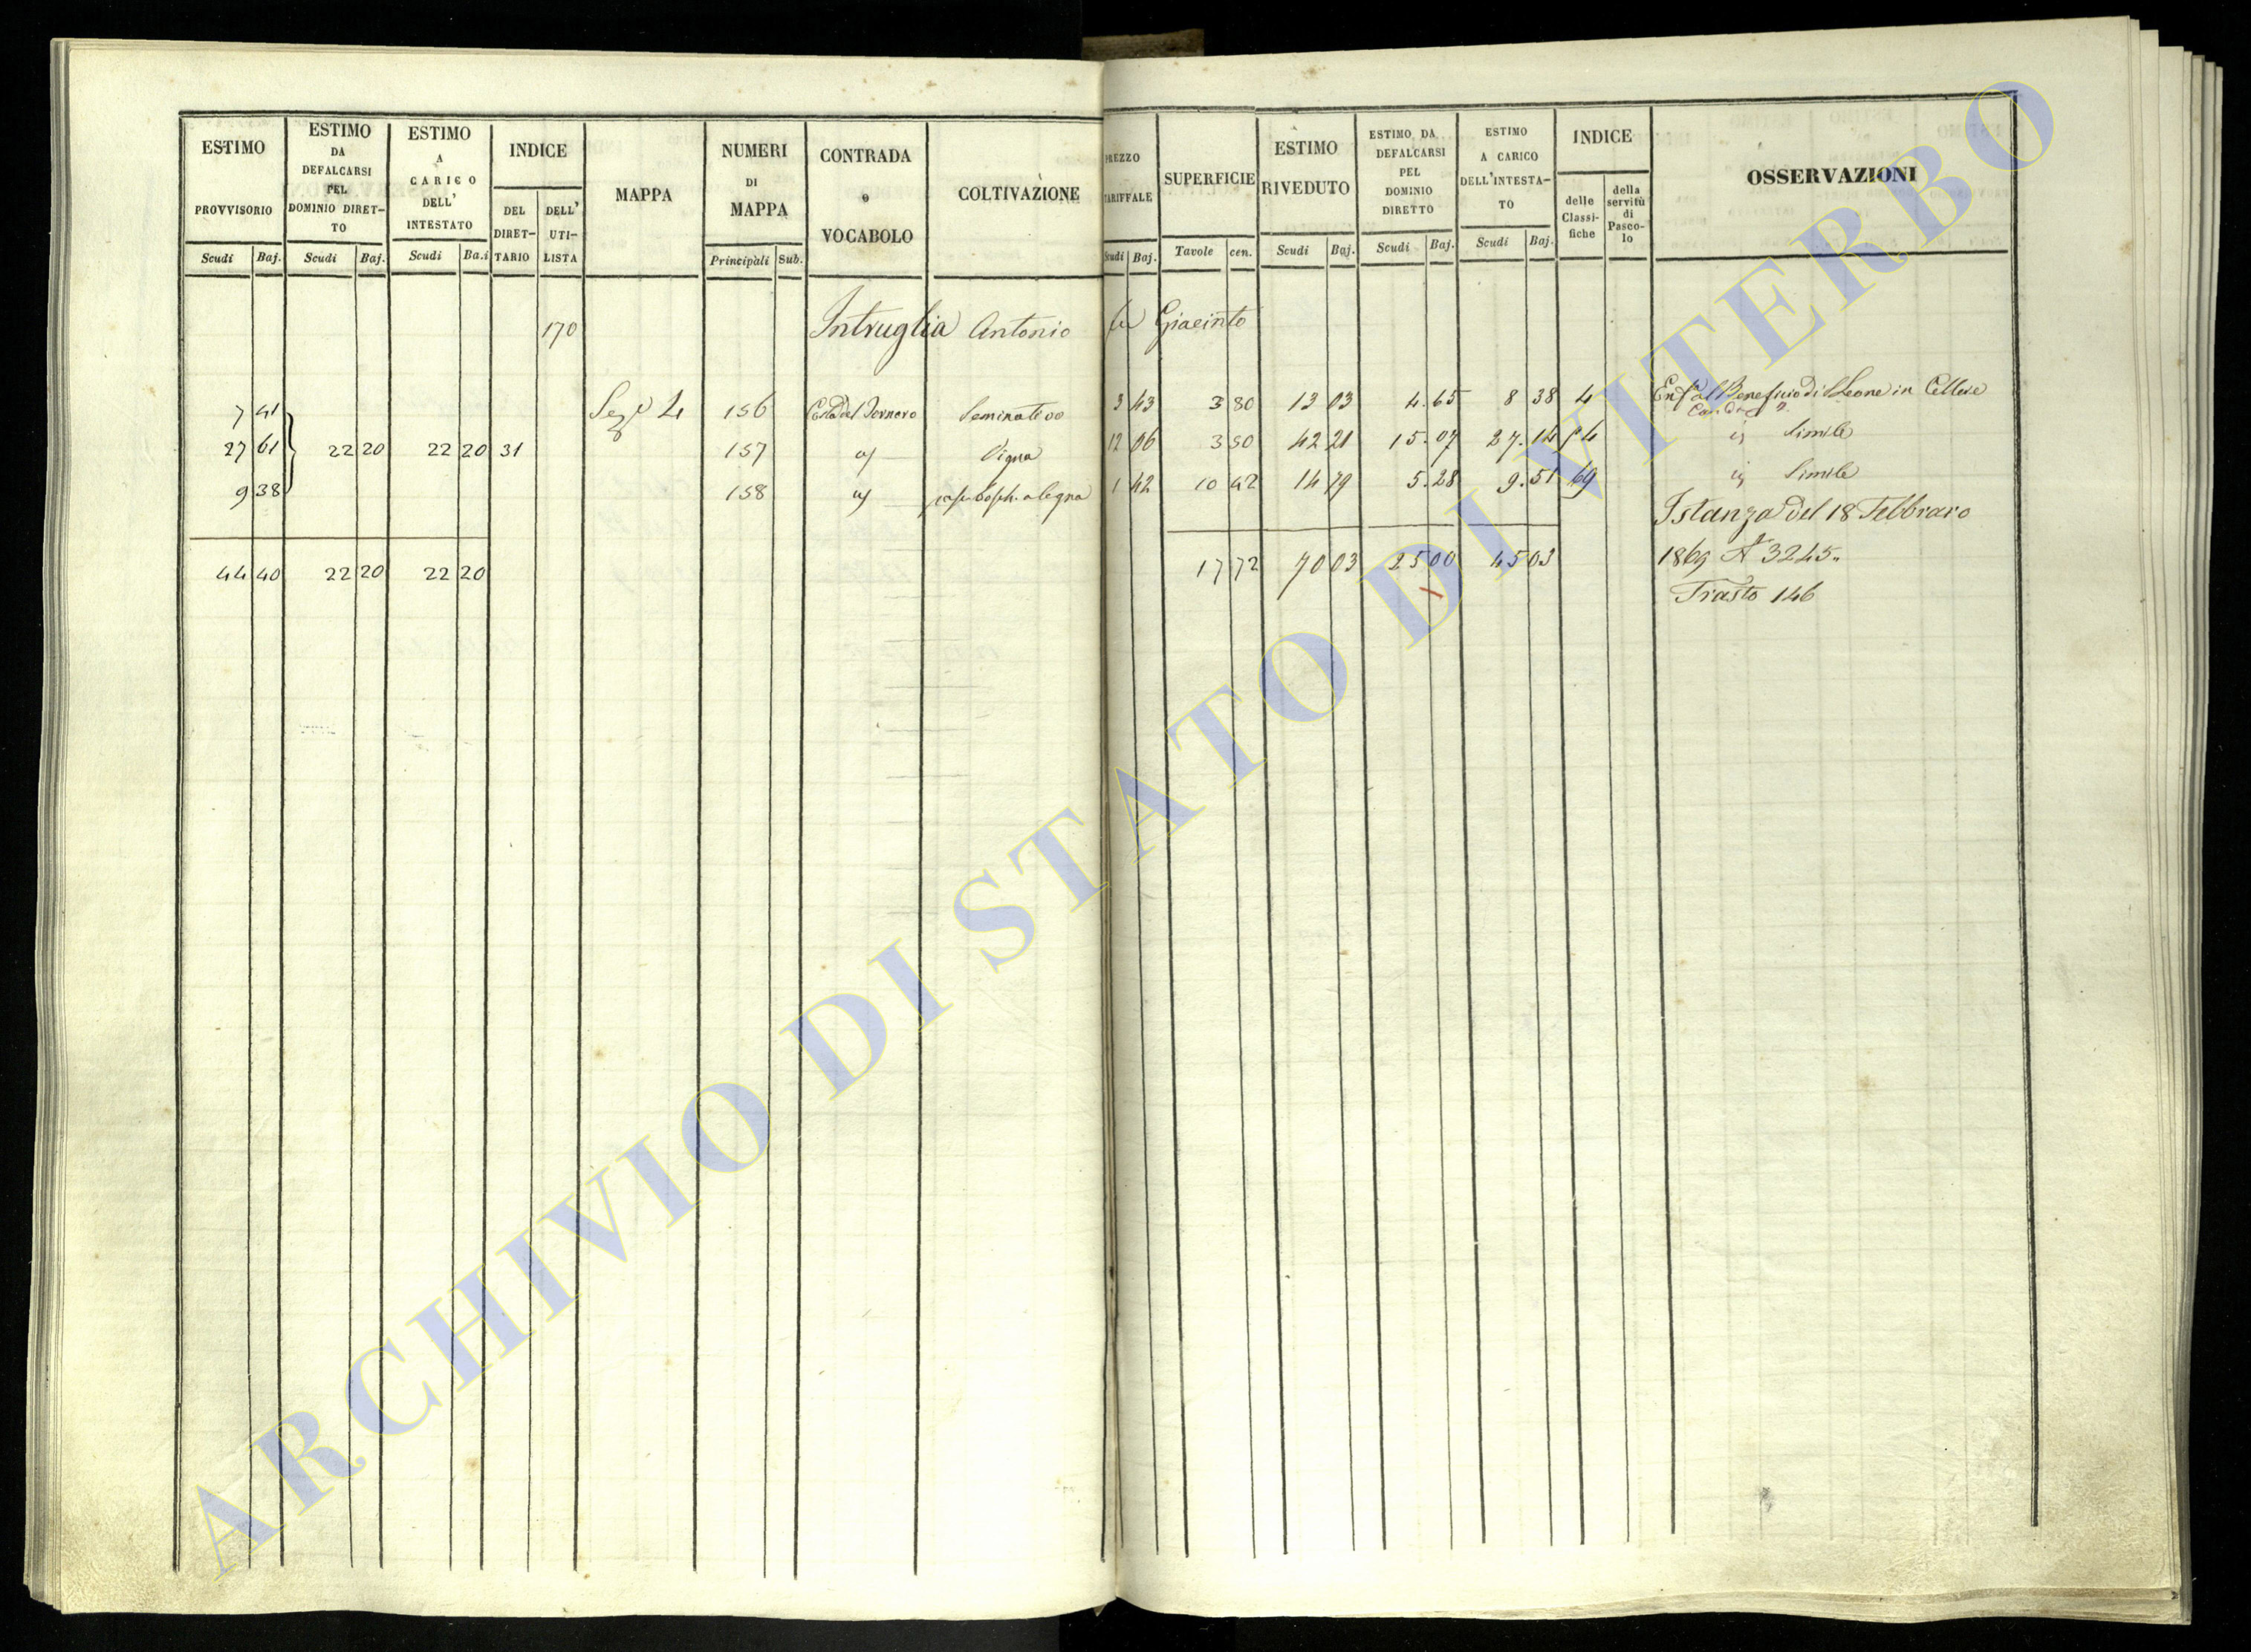 ESTIMO PROVVISORIO
Scudi Baj.
ESTIMO DA DEFALCARSI PEL DOMINIO DIRET-TO
Scudi Baj.
ESTIMO A CARICO DELL' INTESTATO
Scudi Ba.i
INDICE
DEL DIRET-TARIO
DELL' UTI-LISTA
MAPPA
NUMERI DI MAPPA
Principali Sub.
CONTRADA o VOCABOLO
COLTIVAZIONE
PREZZO TARIFFALE
Scudi Baj.
SUPERFICIE
Tavole cen.
ESTIMO RIVEDUTO
Scudi Baj.
ESTIMO DA DEFALCARSI PEL DOMINIO DIRETTO
Scudi Baj.
ESTIMO A CARICO DELL'INTESTA-TO
Scudi Baj.
INDICE
delle Classi-fiche
della servitù di Pasco-lo
OSSERVAZIONI
170 Intruglia Antonio fu Giacinto
7 41 Sez. 4 156 Seminativo 3 43 3 80 13 03 4.65 8 38 4 Beneficio di S Leone in Cellere
27 61 22 20 22 20 31 157 Vigna 12 06 3 50 42 21 15.07 27.14 54 Simile
9 38 158 1 42 10 42 14 79 5.28 9.51 69 Simile
Istanza del 18 Febbraro
44 40 22 20 22 20 17 72 70 03 25 00 45 03 1869 N 3245
Trasto 146
ARCHIVIO DI STATO DI VITERBO